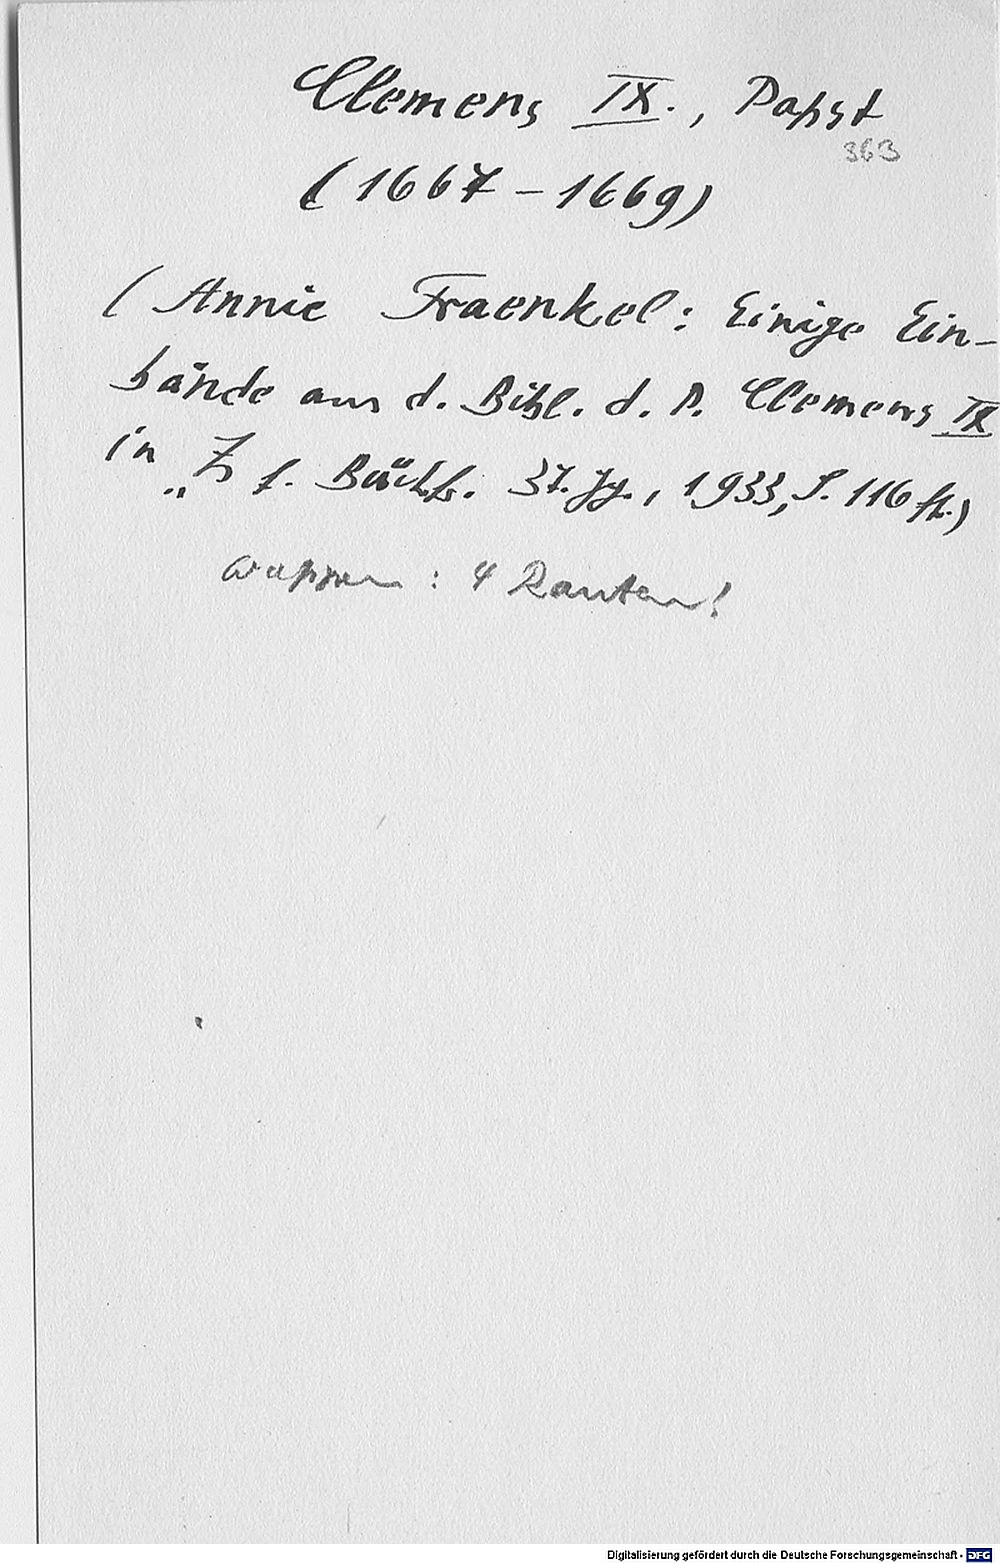 Clemens IX., Papst
363
(1667 – 1669)
(Annie Fraenkel: Einige Ein-
bände aus d. Bibl. d. P. Clemens IX
in „Z f. Büchfr. 37. Jg., 1933, S. 116 ff.)
Wappen: 4 Rauten!
Digitalisierung gefördert durch die Deutsche Forschungsgemeinschaft - DFG